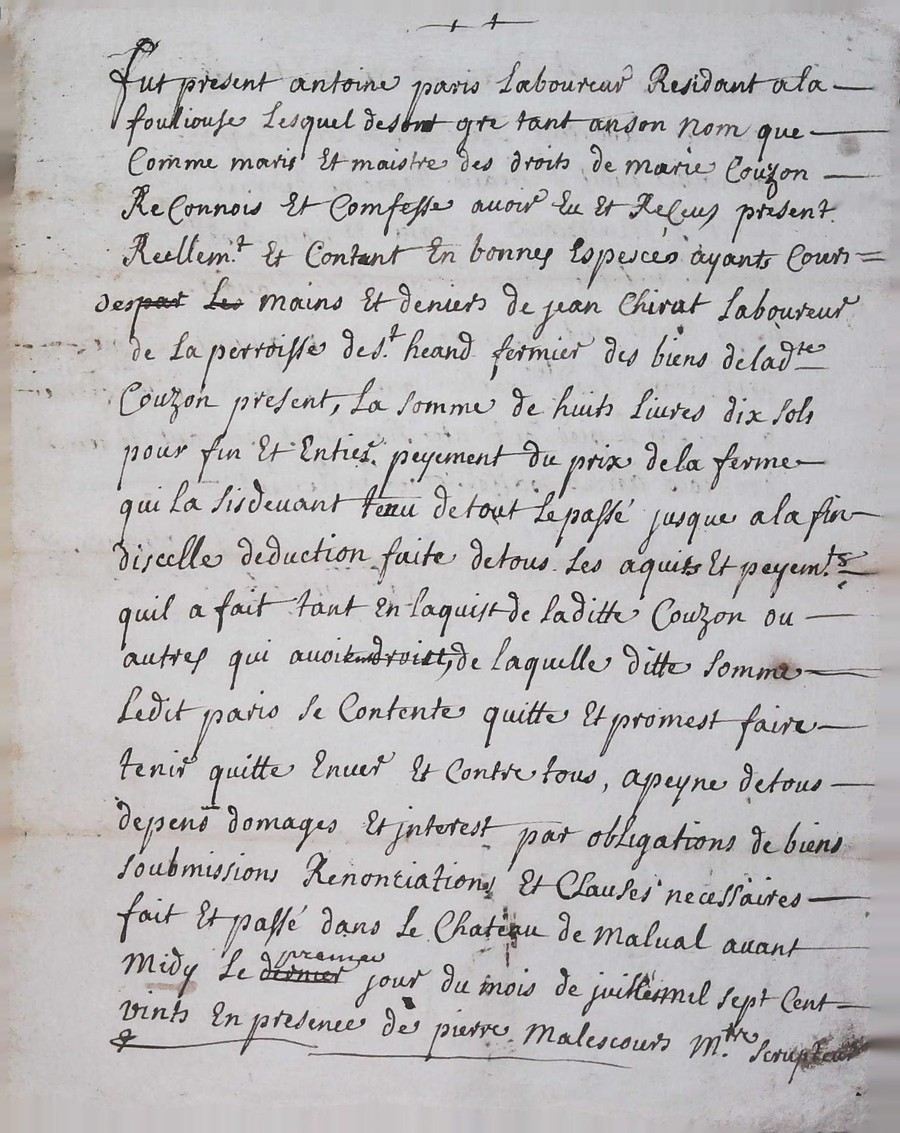 fut present antoine paris Laboureur Residant ala
fouliouse Lesquel desont gre tant anson nom que
Comme maris Et maistre des droits de marie Couzon
ReConnois Et Comfesse avoir Eu Et ReCeus present
Reellem.t Et Contant En bonnes Espesces ayants Cours
des par Les mains Et deniers de jean Chirat Laboureur
de La perroisse de s.t heand fermier des biens delad.te
Couzon present, La somme de huits Livres dix sols
pour fin Et Entier peyement du prix de la ferme
qui La sisdevant tenu detout Le passé jusque a la fin
discelle deduction faite detous Les aquits Et peyem.ts
quil a fait tant En Laquist de laditte Couzon ou
autres qui avoiendroist, de laquelle ditte somme
Ledit paris se Contente quitte Et promest faire
tenir quitte Enver Et Contre tous, apeyne detous
depens domages Et jnterest par obligations de biens
soubmissions Renonciations Et Clauses necessaires
fait Et passé dans Le Chateau de Malval avant
Midy Le dernier premier jour du mois de juillet mil sept Cent
vints En presence de pierre Malescours M.tre Scrupteur